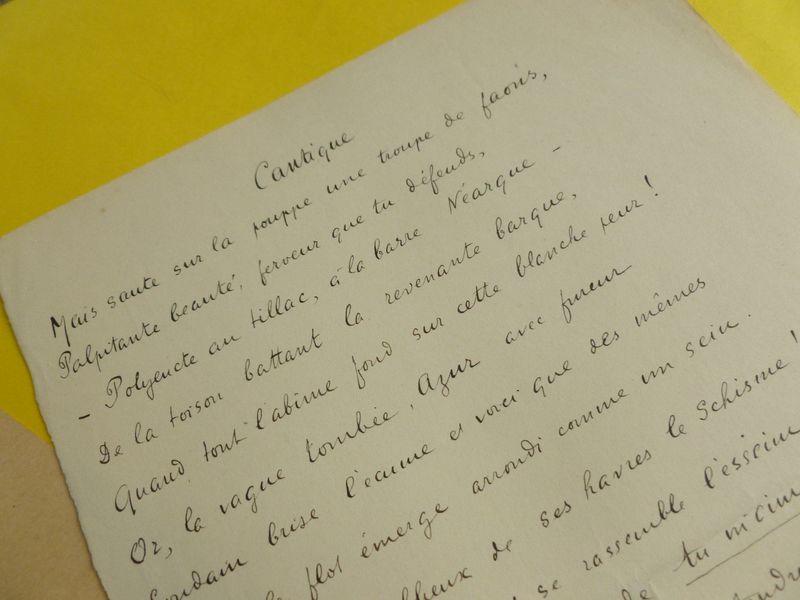 Cantique
Mais saute sur la pouppe une troupe de faons,
Palpitante beauté, ferveur que tu défends,
— Polyeucte au tillac, à la barre Néarque —
De la toison battant la revenante barque,
Quand tout l'abîme fond sur cette blanche peur!
Or, la vague tombée, Azur avec fureur
brise l'écume et voici que des mêmes
flot émerge arrondi comme un sein.
de ses havres le Schisme!
se rassemble l'essaim
tu